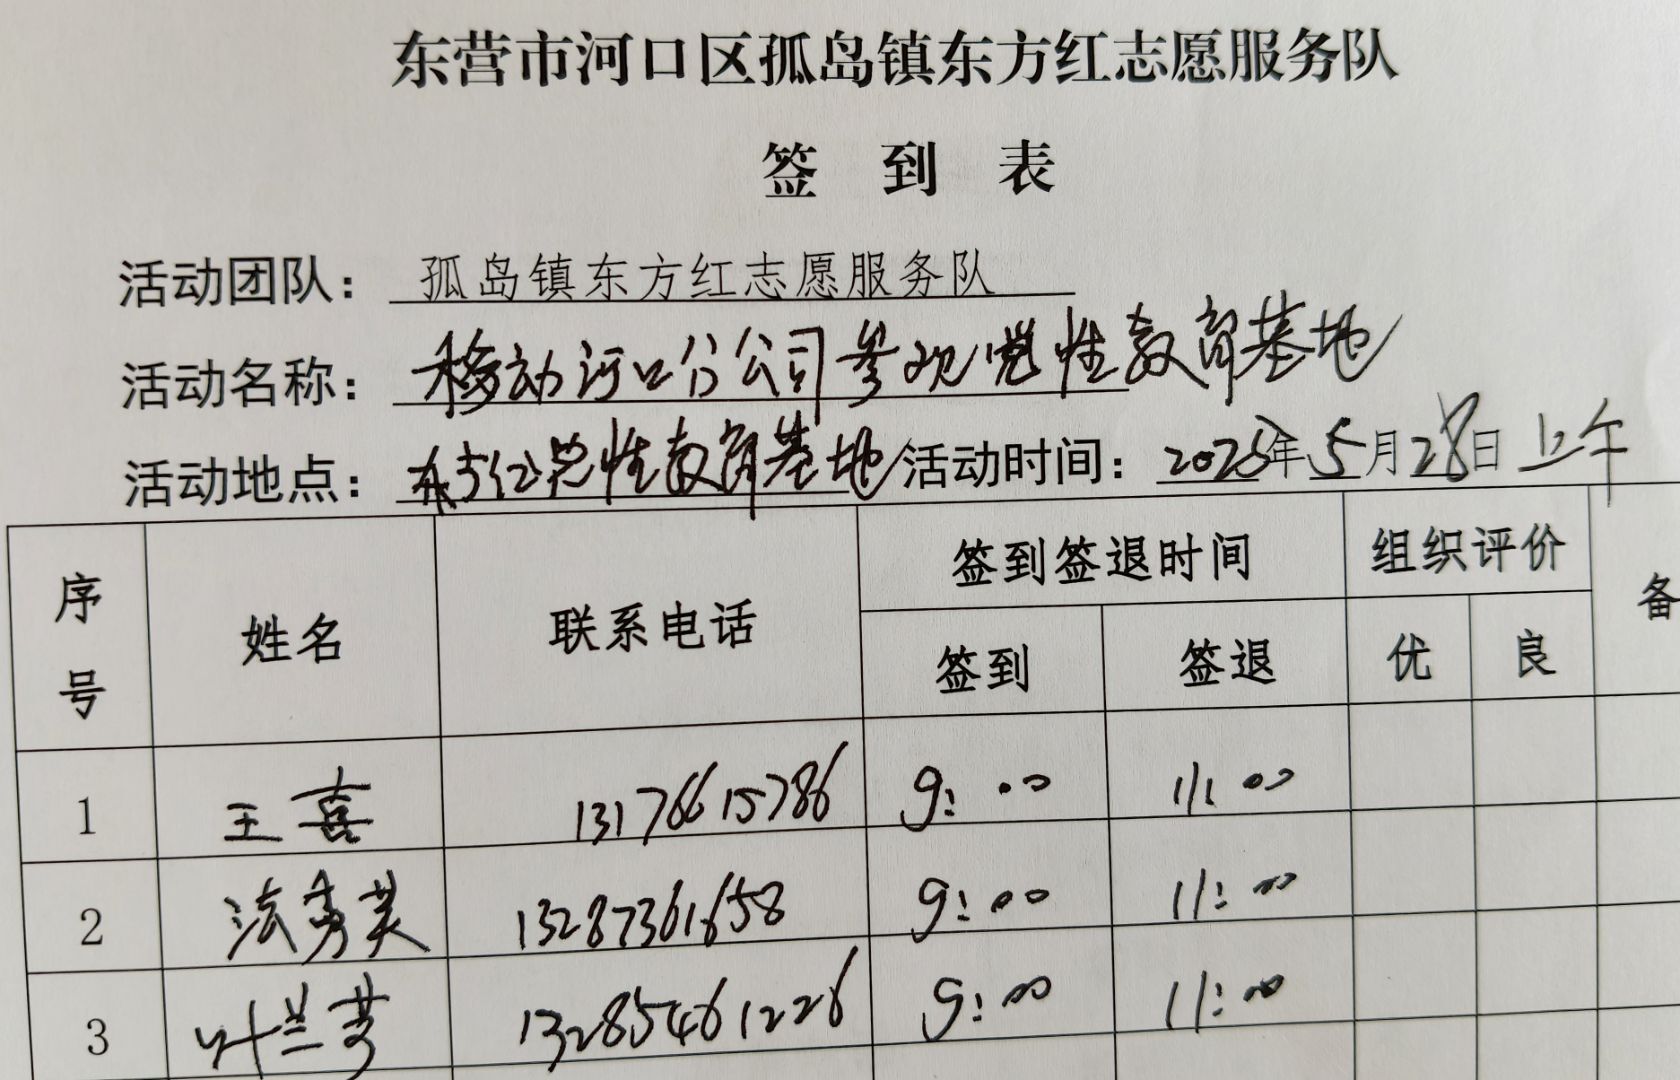 东营市河口区孤岛镇东方红志愿服务队
签 到 表
活动团队：孤岛镇东方红志愿服务队
活动名称：移动河口分公司参观党性教育基地
活动地点：东方红党性教育基地 活动时间：2025年5月28日上午
序号 姓名 联系电话 签到签退时间 组织评价 备
签到 签退 优 良
1 王喜 13176615786 9:00 11:00
2 法秀英 13287361658 9:00 11:00
3 叶兰芬 13285461226 9:00 11:00